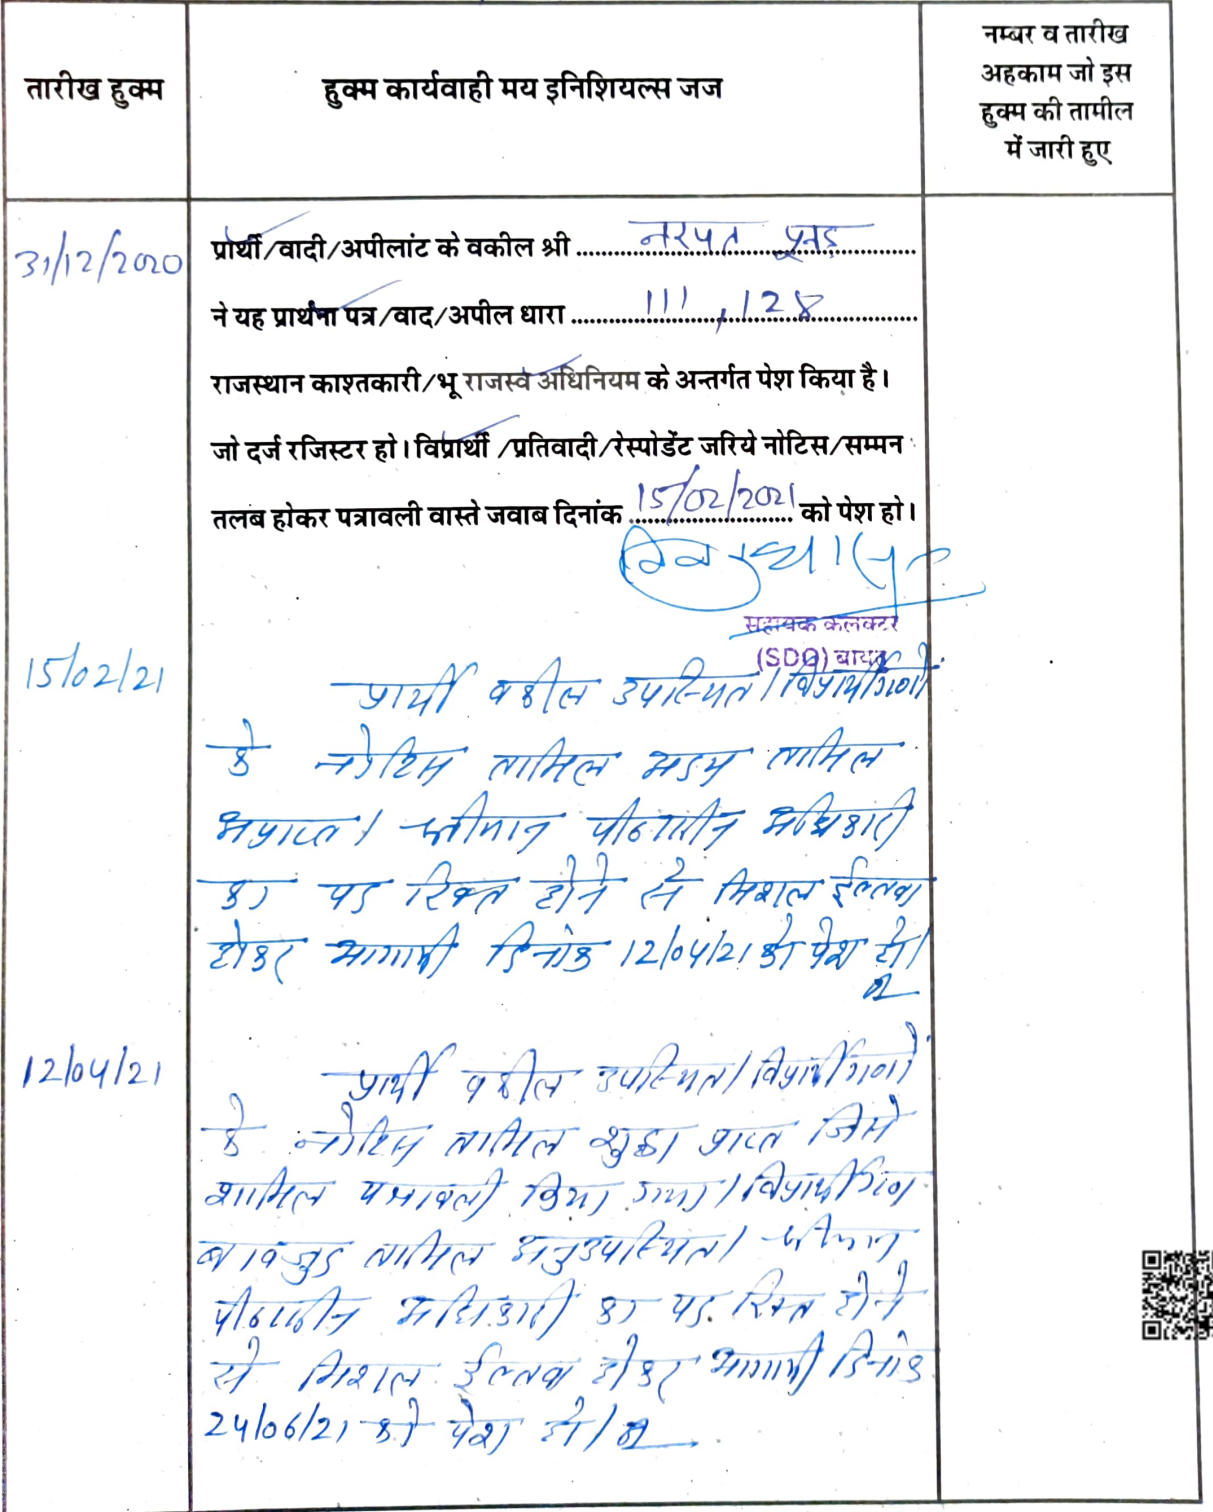 तारीख हुक्म
हुक्म कार्यवाही मय इनिशियल्स जज
नम्बर व तारीख
अहकाम जो इस
हुक्म की तामील
में जारी हुए
31/12/2020
प्रार्थी/वादी/अपीलांट के वकील श्री नरपत
ने यह प्रार्थना पत्र/वाद/अपील धारा 111, 128
राजस्थान काश्तकारी/भू राजस्व अधिनियम के अन्तर्गत पेश किया है।
जो दर्ज रजिस्टर हो। विप्रार्थी /प्रतिवादी/रेस्पोडेंट जरिये नोटिस/सम्मन
तलब होकर पत्रावली वास्ते जवाब दिनांक 15/02/2021 को पेश हो।
सहायक कलक्टर
(SDO) बायतु
15/02/21
प्रार्थी वकील उपस्थित। विप्रार्थीगणों
के नोटिस तामिल अदम तामिल
अप्राप्त। श्रीमान पीठासीन अधिकारी
का पद रिक्त होने से मिशल ईल्तवा
होकर आगामी दिनांक 12/04/21 को पेश हो।
12/04/21
प्रार्थी वकील उपस्थित। विप्रार्थीगणों
के नोटिस तामिल शुदा प्राप्त जिसे
शामिल पत्रावली किया गया। विप्रार्थीगण
बावजुद तामिल अनुउपस्थित। श्रीमान
पीठासीन अधिकारी का पद रिक्त होने
से मिशल ईल्तवा होकर आगामी दिनांक
24/06/21 को पेश हो।